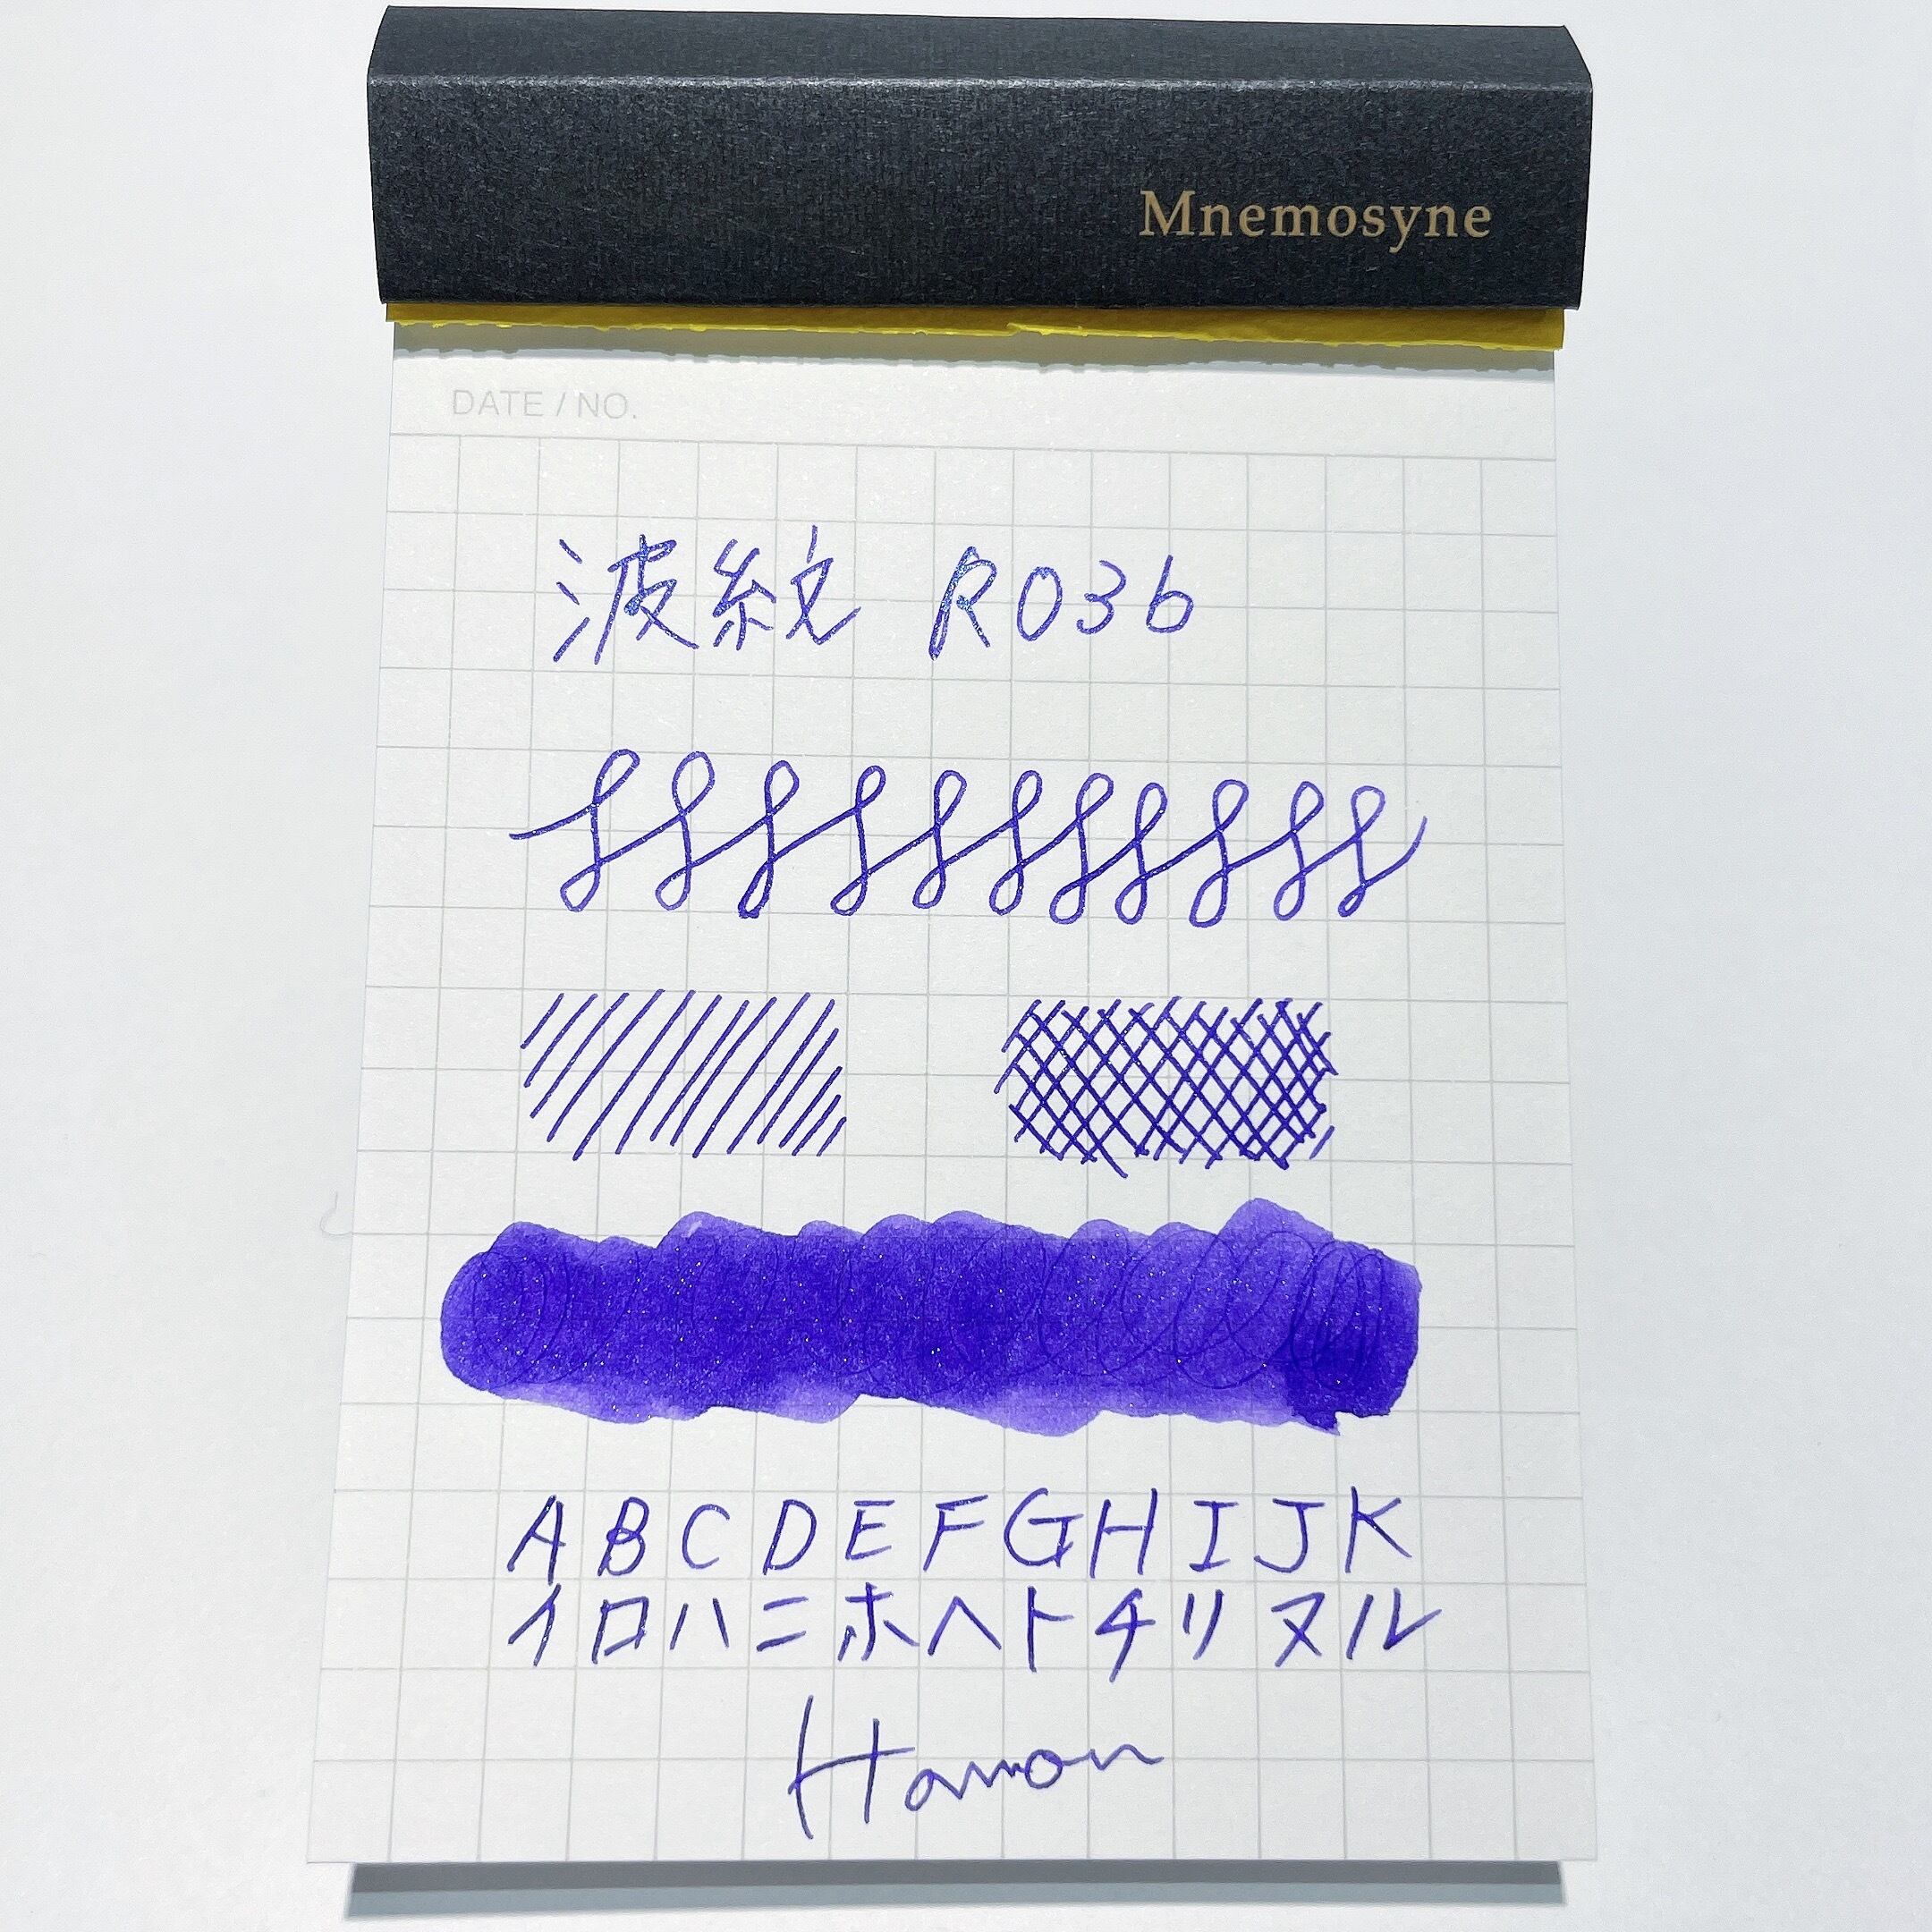 Mnemosyne
DATE / NO.
波紋 R036
A B C D E F G H I J K
イ ロ ハ ニ ホ ヘ ト チ リ ヌ ル
Hamon